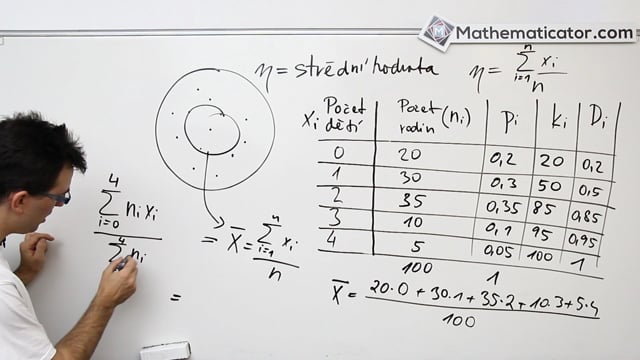 Mathematicator.com
η = střední hodnota
η = Σ_{i=1}^{n} x_i / n
x_i Počet dětí | Počet rodin (n_i) | p_i | k_i | D_i
0 | 20 | 0,2 | 20 | 0,2
1 | 30 | 0,3 | 50 | 0,5
2 | 35 | 0,35 | 85 | 0,85
3 | 10 | 0,1 | 95 | 0,95
4 | 5 | 0,05 | 100 | 1
100 | 1
Σ_{i=0}^{4} n_i x_i / Σ^{4} n_i
= x̄ = Σ_{i=1}^{n} x_i / n
=
x̄ = 20·0 + 30·1 + 35·2 + 10·3 + 5·4 / 100